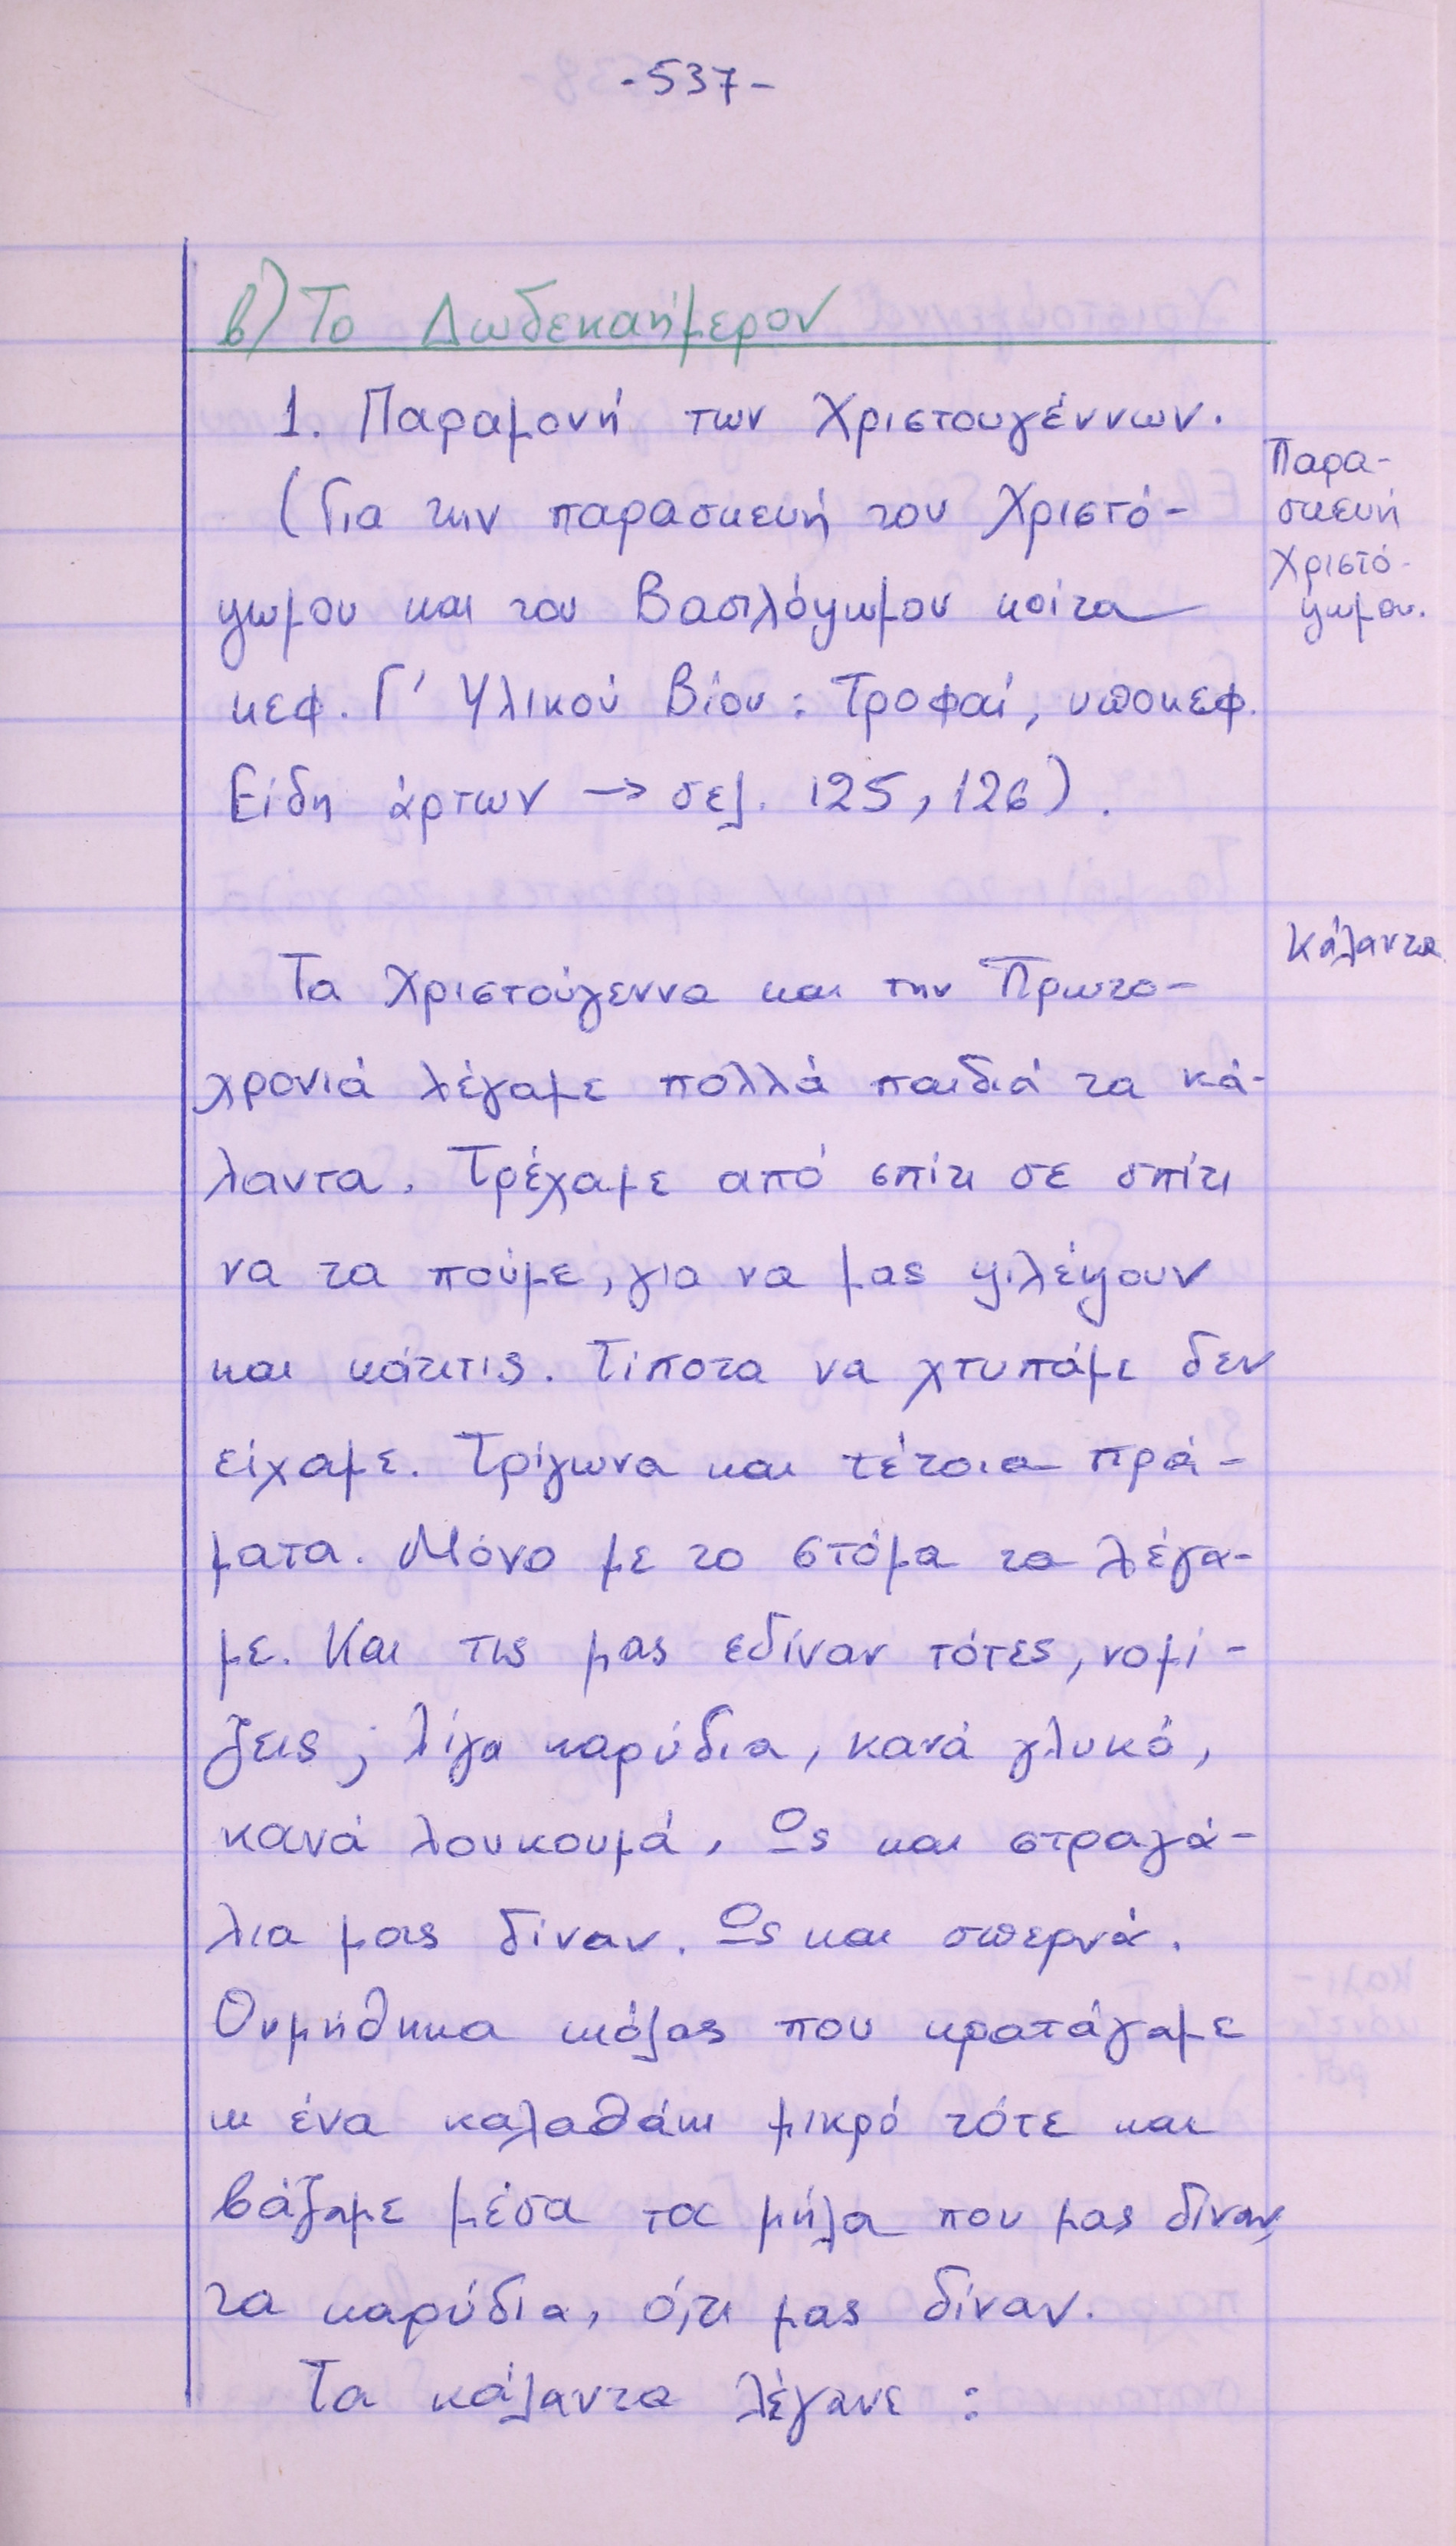 -537-
β) Το Δωδεκαήμερον
1. Παραμονή των Χριστουγέννων.
(Για την παρασκευή του Χριστό-
ψωμου και του Βασιλόψωμου κοίτα
κεφ. Γ' Υλικού Βίου: Τροφαί, υποκεφ.
Είδη άρτων → σελ. 125, 126).
Παρα-
σκευή
Χριστό-
ψωμου.
Κάλαντα
Τα Χριστούγεννα και την Πρωτο-
χρονιά λέγαμε πολλά παιδιά τα κά-
λαντα. Τρέχαμε από σπίτι σε σπίτι
να τα πούμε, για να μας φιλέψουν
και κάτιτις. Τίποτα να χτυπάμε δεν
είχαμε. Τρίγωνα και τέτοια πρά-
ματα. Μόνο με το στόμα τα λέγα-
με. Και τις μας εδίναν τότες, νομί-
ζεις; λίγα καρύδια, κανά γλυκό,
κανά λουκουμά, Ως και στραγά-
λια μας δίναν. Ως και σπερνά.
Θυμήθηκα κιόλας που κρατάγαμε
κι ένα καλαθάκι μικρό τότε και
βάζαμε μέσα τα μήλα που μας δίναν,
τα καρύδια, ό,τι μας δίναν.
Τα κάλαντα λέγανε :